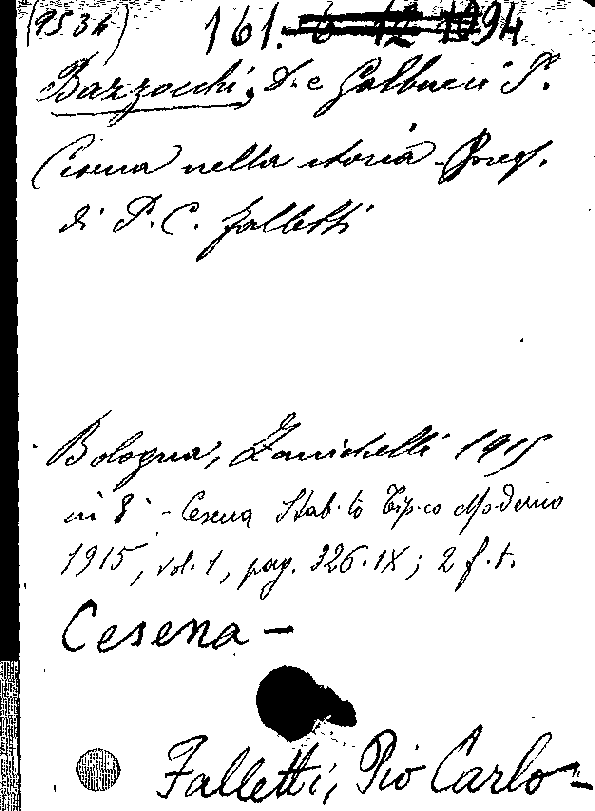 (9536)
161. 6 12 1094
Bazzocchi, D. e Galbucci P.
Cesena nella storia - Pref.
di P. C. Falletti
Bologna, Zanichelli 1915
in 8° - Cesena Stab. to Tip. co Moderno
1915, vol. 1, pag. 326. IX; 2 f. t.
Cesena -
Falletti, Pio Carlo -